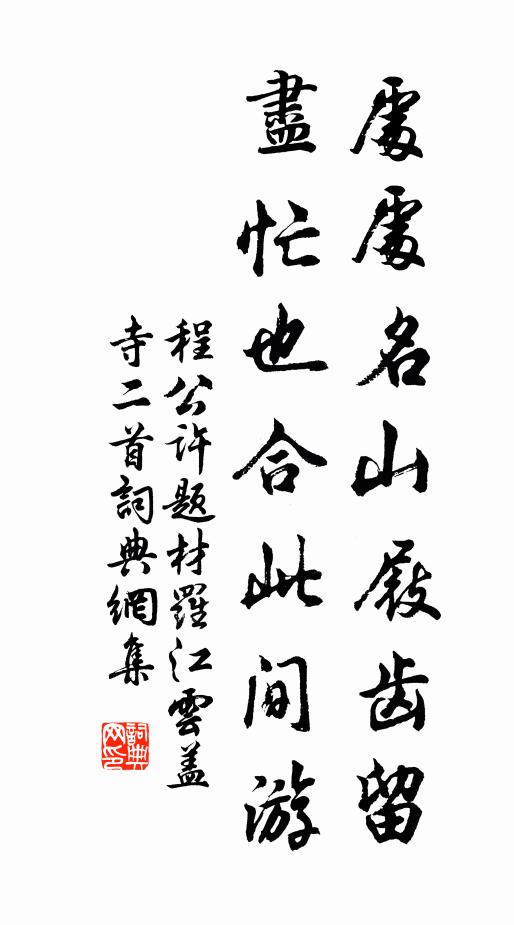 處處名山屐齿留
盡忙也合此间游
程公许题材羅江雲盖
寺二首詞典網集
詞典网印